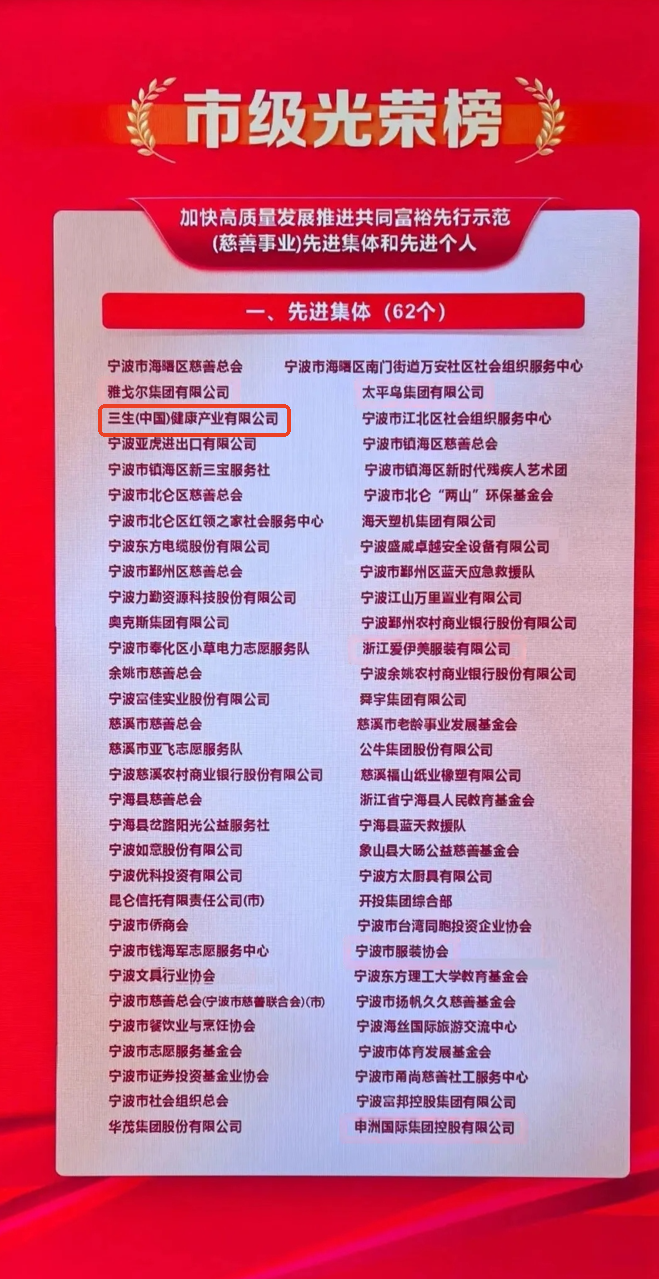 市级光荣榜
加快高质量发展推进共同富裕先行示范
(慈善事业)先进集体和先进个人
一、先进集体（62个）
宁波市海曙区慈善总会 宁波市海曙区南门街道万安社区社会组织服务中心
雅戈尔集团有限公司 太平鸟集团有限公司
三生(中国)健康产业有限公司 宁波市江北区社会组织服务中心
宁波亚虎进出口有限公司 宁波市镇海区慈善总会
宁波市镇海区新三宝服务社 宁波市镇海区新时代残疾人艺术团
宁波市北仑区慈善总会 宁波市北仑“两山”环保基金会
宁波市北仑区红领之家社会服务中心 海天塑机集团有限公司
宁波东方电缆股份有限公司 宁波盛威卓越安全设备有限公司
宁波市鄞州区慈善总会 宁波市鄞州区蓝天应急救援队
宁波力勤资源科技股份有限公司 宁波江山万里置业有限公司
奥克斯集团有限公司 宁波鄞州农村商业银行股份有限公司
宁波市奉化区小草电力志愿服务队 浙江爱伊美服装有限公司
余姚市慈善总会 宁波余姚农村商业银行股份有限公司
宁波富佳实业股份有限公司 舜宇集团有限公司
慈溪市慈善总会 慈溪市老龄事业发展基金会
慈溪市亚飞志愿服务队 公牛集团股份有限公司
宁波慈溪农村商业银行股份有限公司 慈溪福山纸业橡塑有限公司
宁海县慈善总会 浙江省宁海县人民教育基金会
宁海县岔路阳光公益服务社 宁海县蓝天救援队
宁波如意股份有限公司 象山县大旸公益慈善基金会
宁波优科投资有限公司 宁波方太厨具有限公司
昆仑信托有限责任公司(市) 开投集团综合部
宁波市侨商会 宁波市台湾同胞投资企业协会
宁波市钱海军志愿服务中心 宁波市服装协会
宁波文具行业协会 宁波东方理工大学教育基金会
宁波市慈善总会(宁波市慈善联合会)(市) 宁波市扬帆久久慈善基金会
宁波市餐饮业与烹饪协会 宁波海丝国际旅游交流中心
宁波市志愿服务基金会 宁波市体育发展基金会
宁波市证券投资基金业协会 宁波市甬尚慈善社工服务中心
宁波市社会组织总会 宁波富邦控股集团有限公司
华茂集团股份有限公司 申洲国际集团控股有限公司